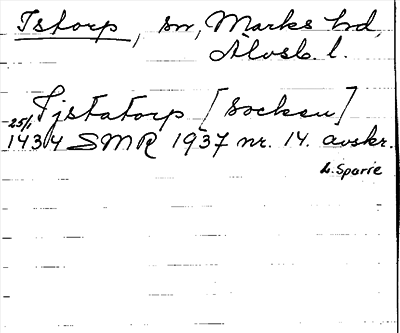 Istorp, sn, Marks hd,
Älvsb. l.
Tjstatorp [socken]
25/1 1434 SMR 1937 nr. 14. avskr.
L. Sparre